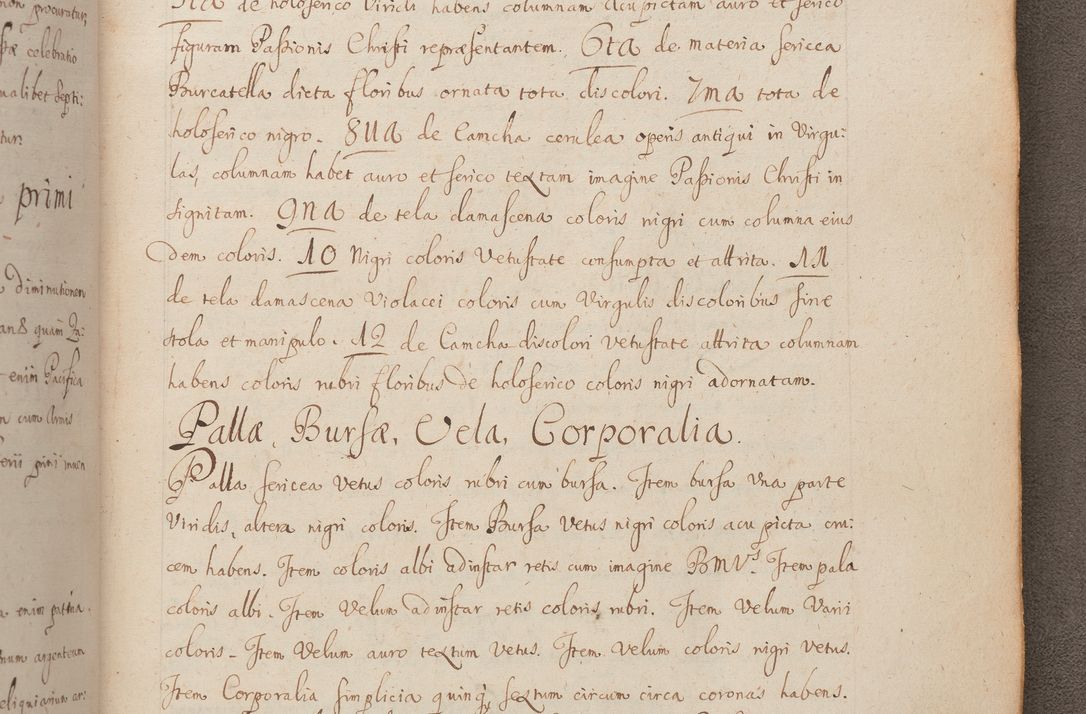 non procuratur,
de holoserico viridi habens columnam acu pictam auro et serico
figuram Paßionis Christi repræsentantem. 6ta de materia sericea
Burcatella dicta floribus ornata tota discolori. 7ma tota de
holoserico nigro. 8ua de Camcha cerulea operis antiqui in Virgu:
las, columnam habet auro et serico textam imagine Paßionis Christi in
signitam. 9na de tela damascena coloris nigri cum columna eius
dem coloris. 10 Nigri coloris Vetustate consumpta et attrita. 11
de tela damascena Violacei coloris cum Virgulis discoloribus sine
stola et manipulo. 12 de Camcha discolori vetustate attrita columnam
habens coloris rubri floribus de holoserico coloris nigri adornatam.
Pallæ, Bursæ, Vela, Corporalia.
Palla sericea Vetus coloris rubri cum bursa. Item bursa una parte
Viridis, altera nigri coloris. Item Bursa Vetus nigri coloris acu picta cru:
cem habens. Item coloris albi adinstar retis cum imagine BMVs. Item pala
coloris albi. Item Velum adinstar retis coloris rubri. Item Velum Varii
coloris. Item Velum auro textum Vetus. Item Velum coloris nigri Vetus.
Item Corporalia simplicia quinq sextum circum circa coronas habens.
celebratio
ualibet Septi:
tur:
primi
Diminutionem
quam In:
enim Pacifica
cum Armis
enim patina.
num argenteum
eliquiarium ar: